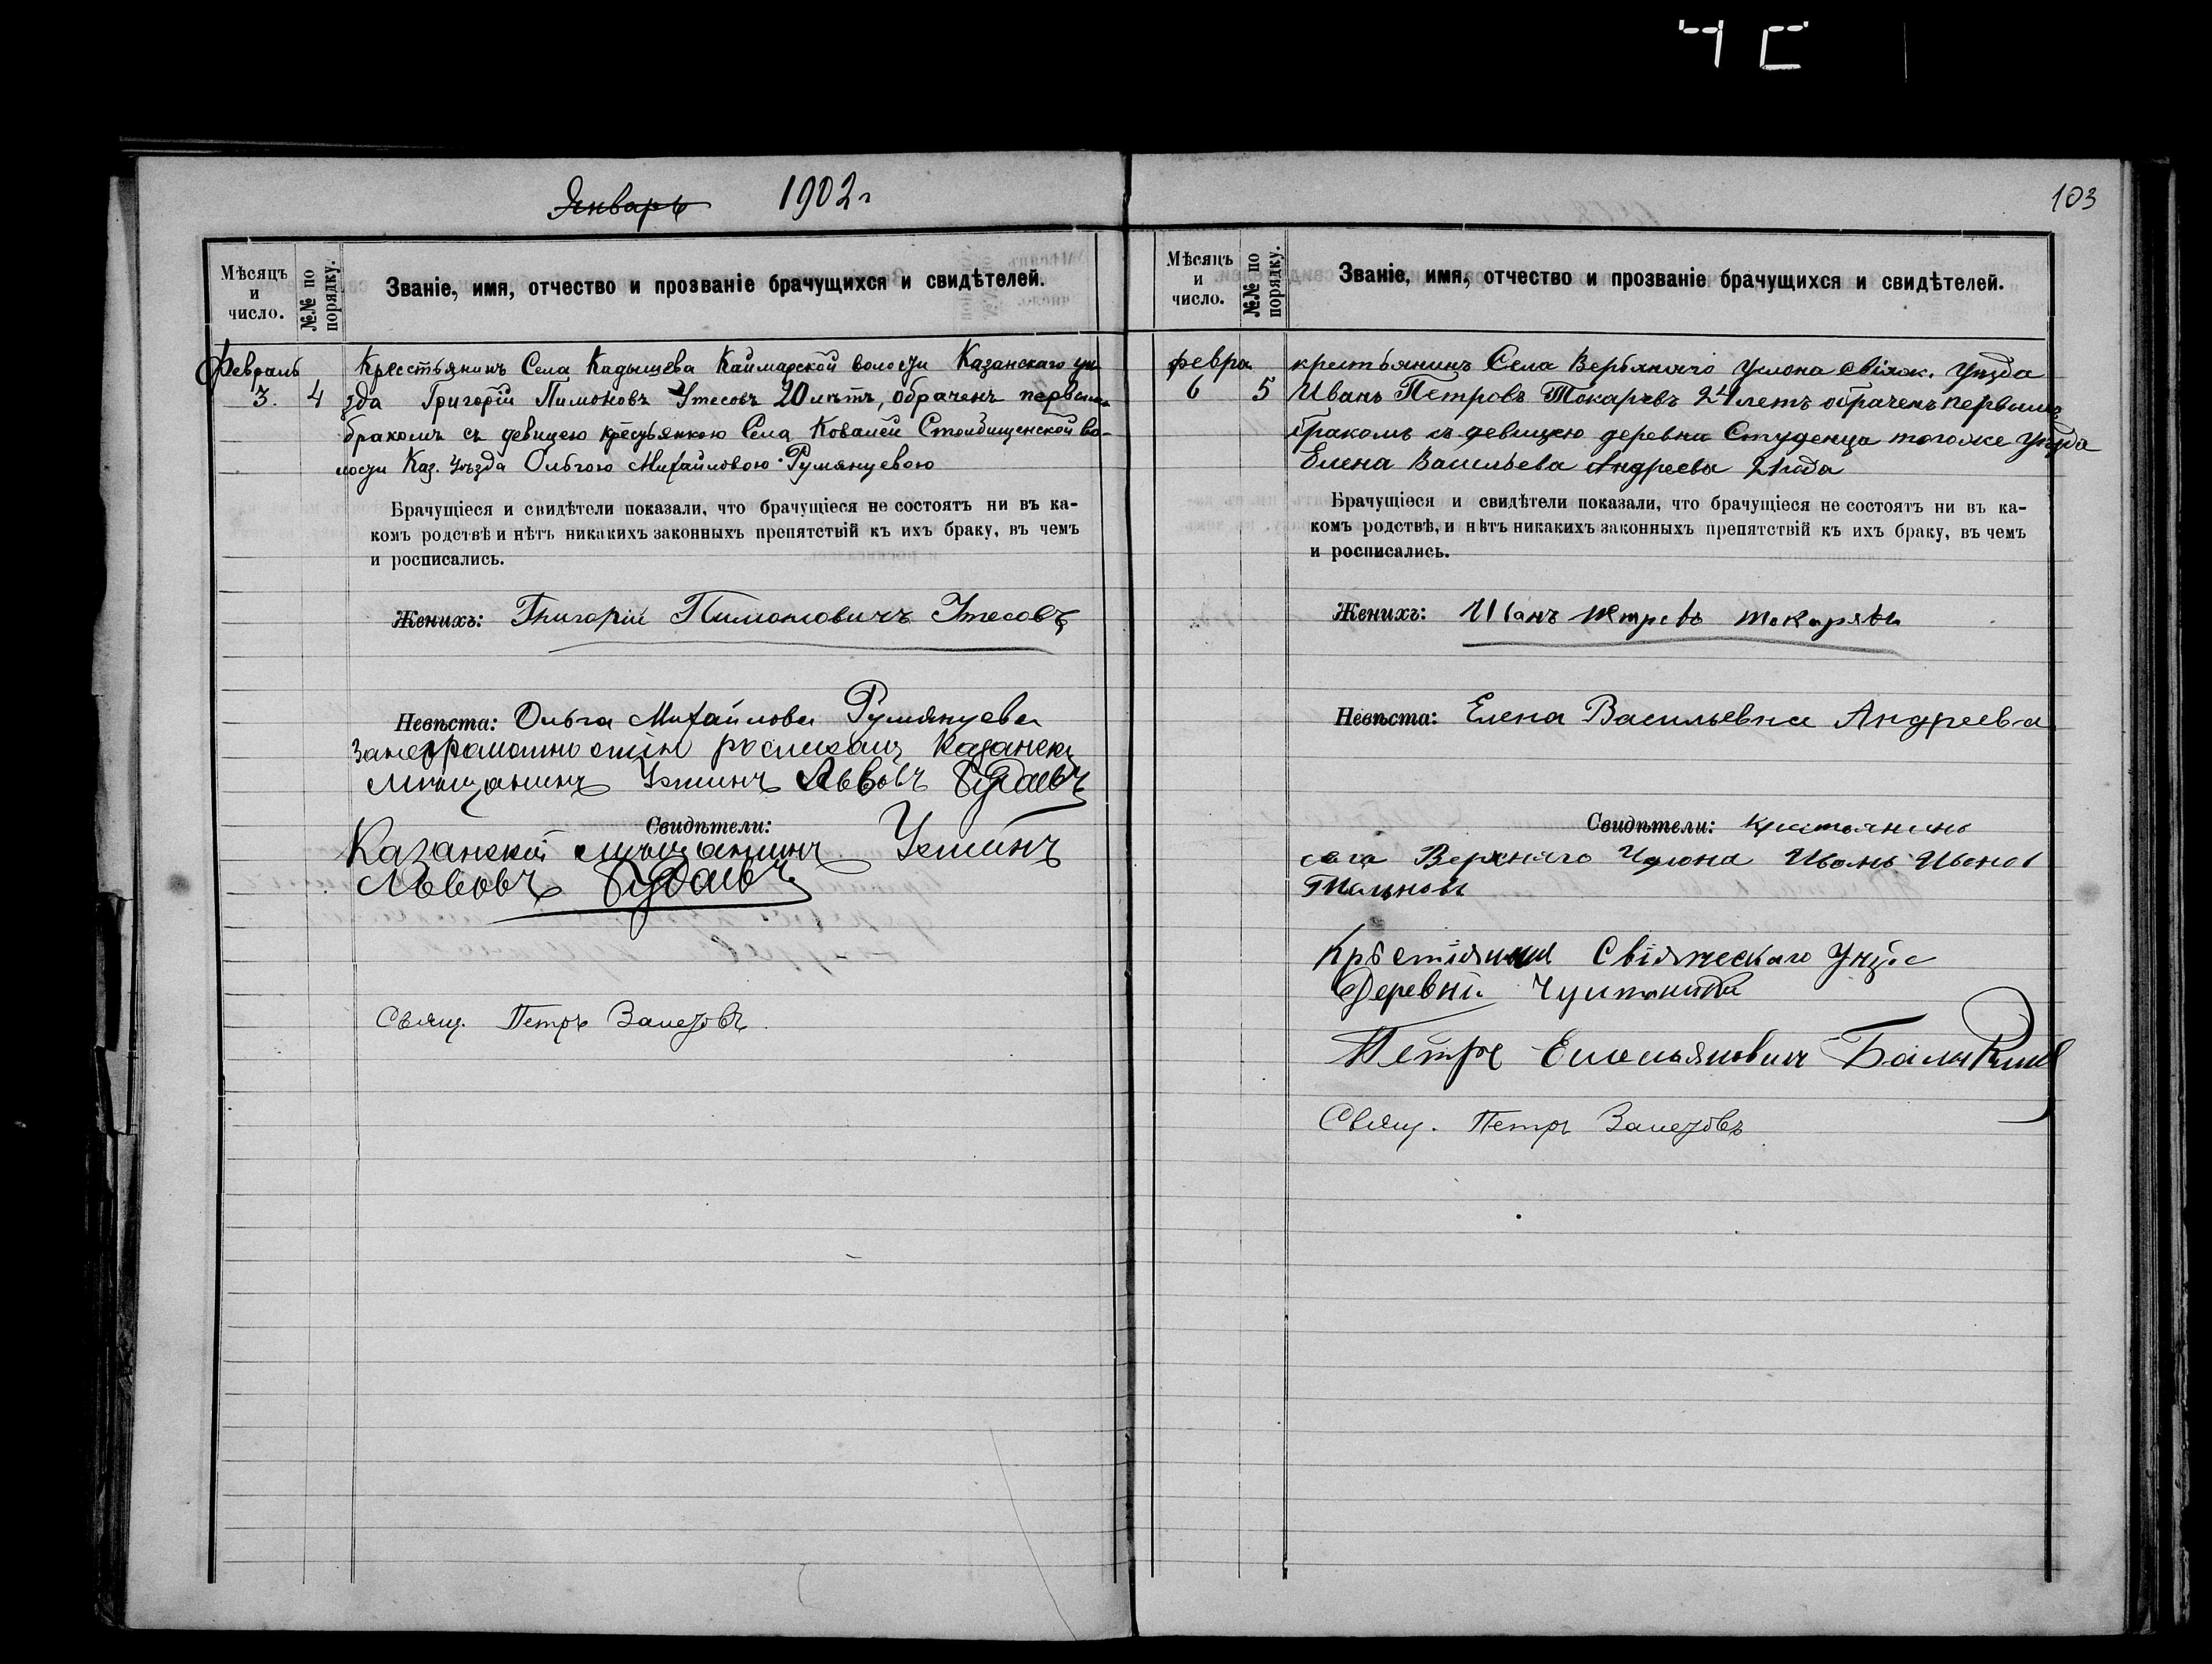 Январь 1902 г
103
Мѣсяцъ и число.
№№ по порядку.
Званіе, имя, отчество и прозваніе брачущихся и свидѣтелей.
Февраль Крестьянинъ Села Кадышева Каймарской волости Казанскаго уѣ
3. 4 зда Григорій Пимоновъ Утесовъ 20 лѣтъ, обраченъ первымъ
бракомъ съ девицею крестьянкою Села Ковалей Столбищенской во-
лости Каз. Уѣзда Ольгою Михайловою Румянцевою
Брачущіеся и свидѣтели показали, что брачущіеся не состоятъ ни въ ка-
комъ родствѣ и нѣтъ никакихъ законныхъ препятствій къ ихъ браку, въ чемъ
и росписались.
Женихъ: Григорій Пимоновичъ Утесовъ
Невѣста: Ольга Михайлова Румянцева
Казански
мѣщанинъ Устинъ Львовъ
Свидѣтели:
Казанской мѣщанинъ Устинъ
Львовъ
Свящ. Петръ
Мѣсяцъ и число.
№№ по порядку.
Званіе, имя, отчество и прозваніе брачущихся и свидѣтелей.
февра. крестьянинъ Села Услона Свіяж. Уѣзда
6 5 Иванъ Петровъ Токаревъ 24 летъ обраченъ первымъ
бракомъ съ девицею деревни Студенца тогоже Уѣзда
Елена Васильева Андреева 21 года
Брачущіеся и свидѣтели показали, что брачущіеся не состоятъ ни въ ка-
комъ родствѣ, и нѣтъ никакихъ законныхъ препятствій къ ихъ браку, въ чемъ
и росписались.
Женихъ: Иванъ
Невѣста: Елена Васильевна Андреева
Свидѣтели: крестьянинъ
Верхняго Услона Иванъ Иванов
Свіяжескаго
Деревни
Петръ Емельяновичъ
Свящ. Петръ